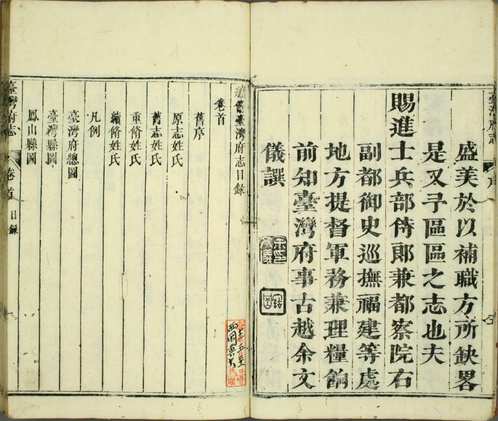 盛美於以補職方所缺畧
是又予區區之志也夫
賜進士兵部侍郎兼都察院右
副都御史巡撫福建等處
地方提督軍務兼理糧餉
前知臺灣府事古越余文
儀譔
續脩臺灣府志目錄
卷首
舊序
原志姓氏
舊志姓氏
重脩姓氏
續脩姓氏
凡例
臺灣府總圖
臺灣縣圖
鳳山縣圖
臺灣府志
卷首
目錄